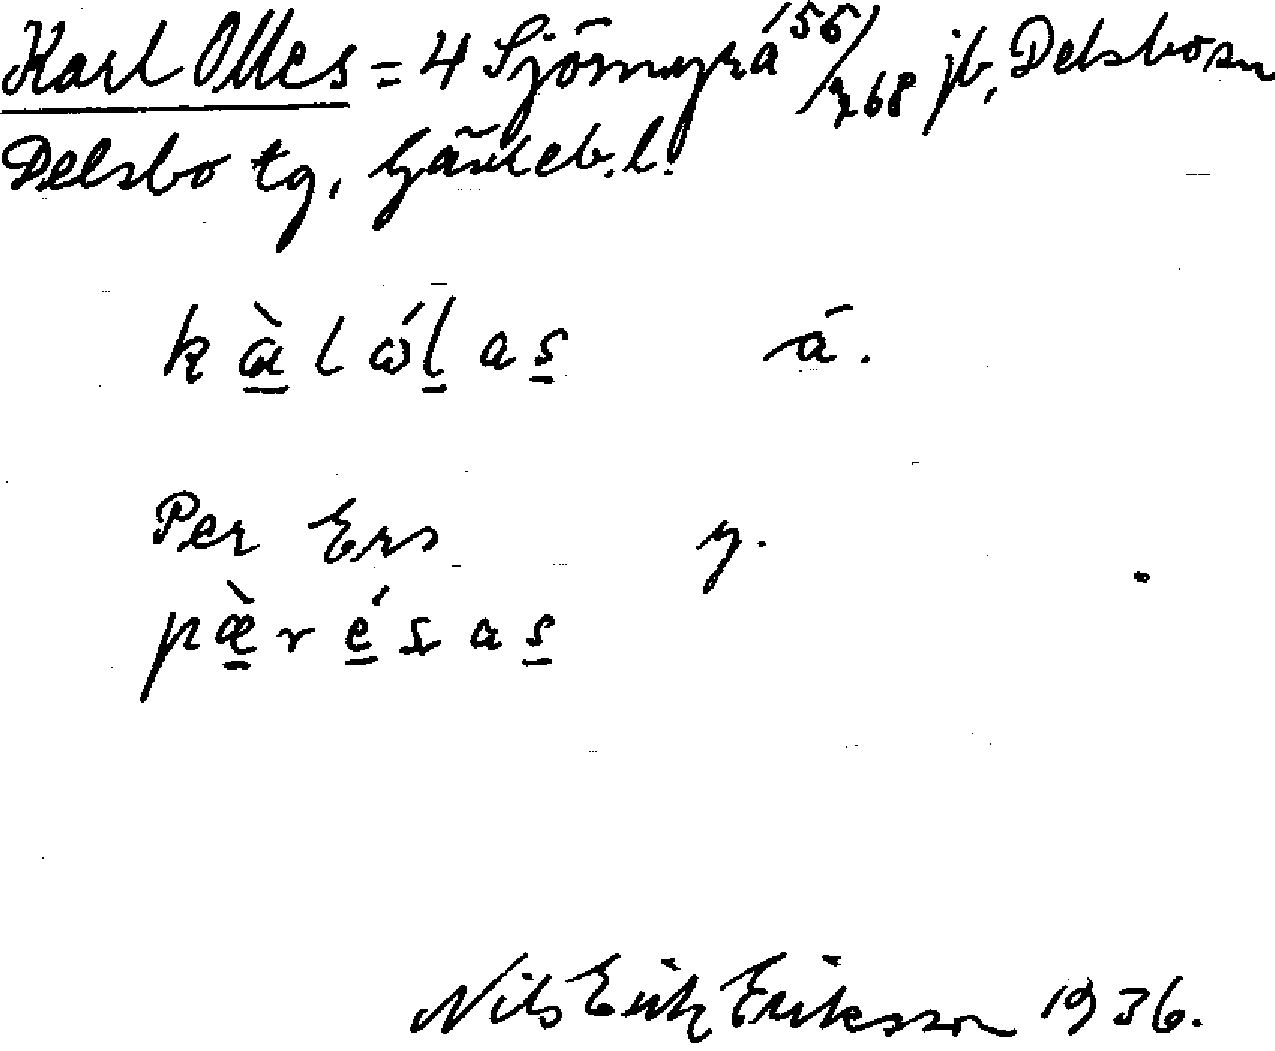 Karl Olles = 4 Sjömyra 156/268 jb, Delsbo sn
Delsbo tg, Gävleb. l.
kàlólas ä.
Per Ers y.
pæ̀résas
Nils Erik Eriksson 1936.